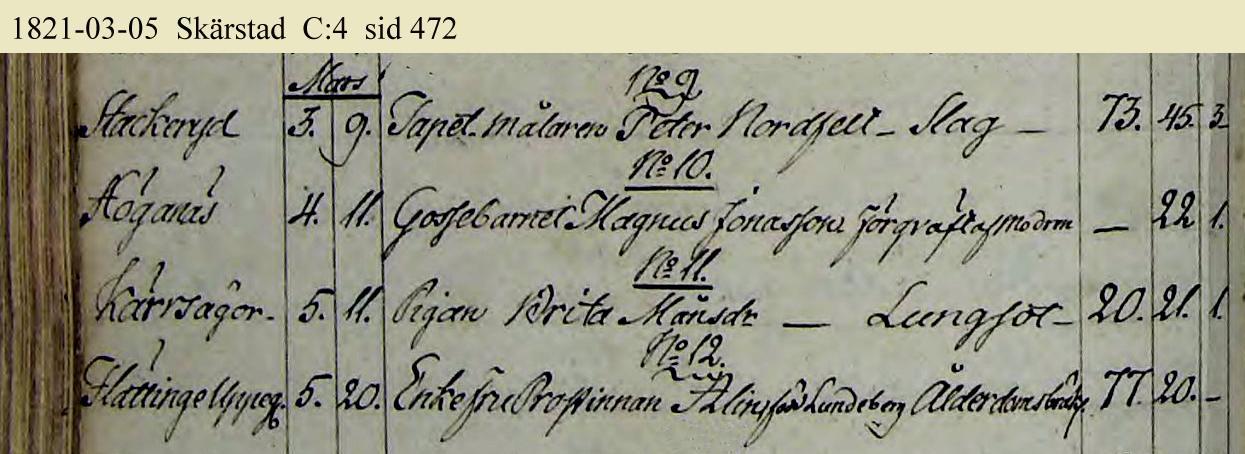 1821-03-05 Skärstad C:4 sid 472
Mars
No 9
Stackeryd 3. 9. Tapet-målaren Peter Nordfelt – Slag – 73. 45. 3
No 10.
Höganäs 4. 11. Gossebarnet Magnus Jonasson förqväft af modren – 22 1.
No 11.
Kärrsagör. 5. 11. Pigan Brita Månsdr — Lungsot – 20. 21. 1.
No 12.
Flättinge Uppeg. 5. 20. Enkefru Prostinnan Lundeberg Ålderdomsbräck. 77. 20. –